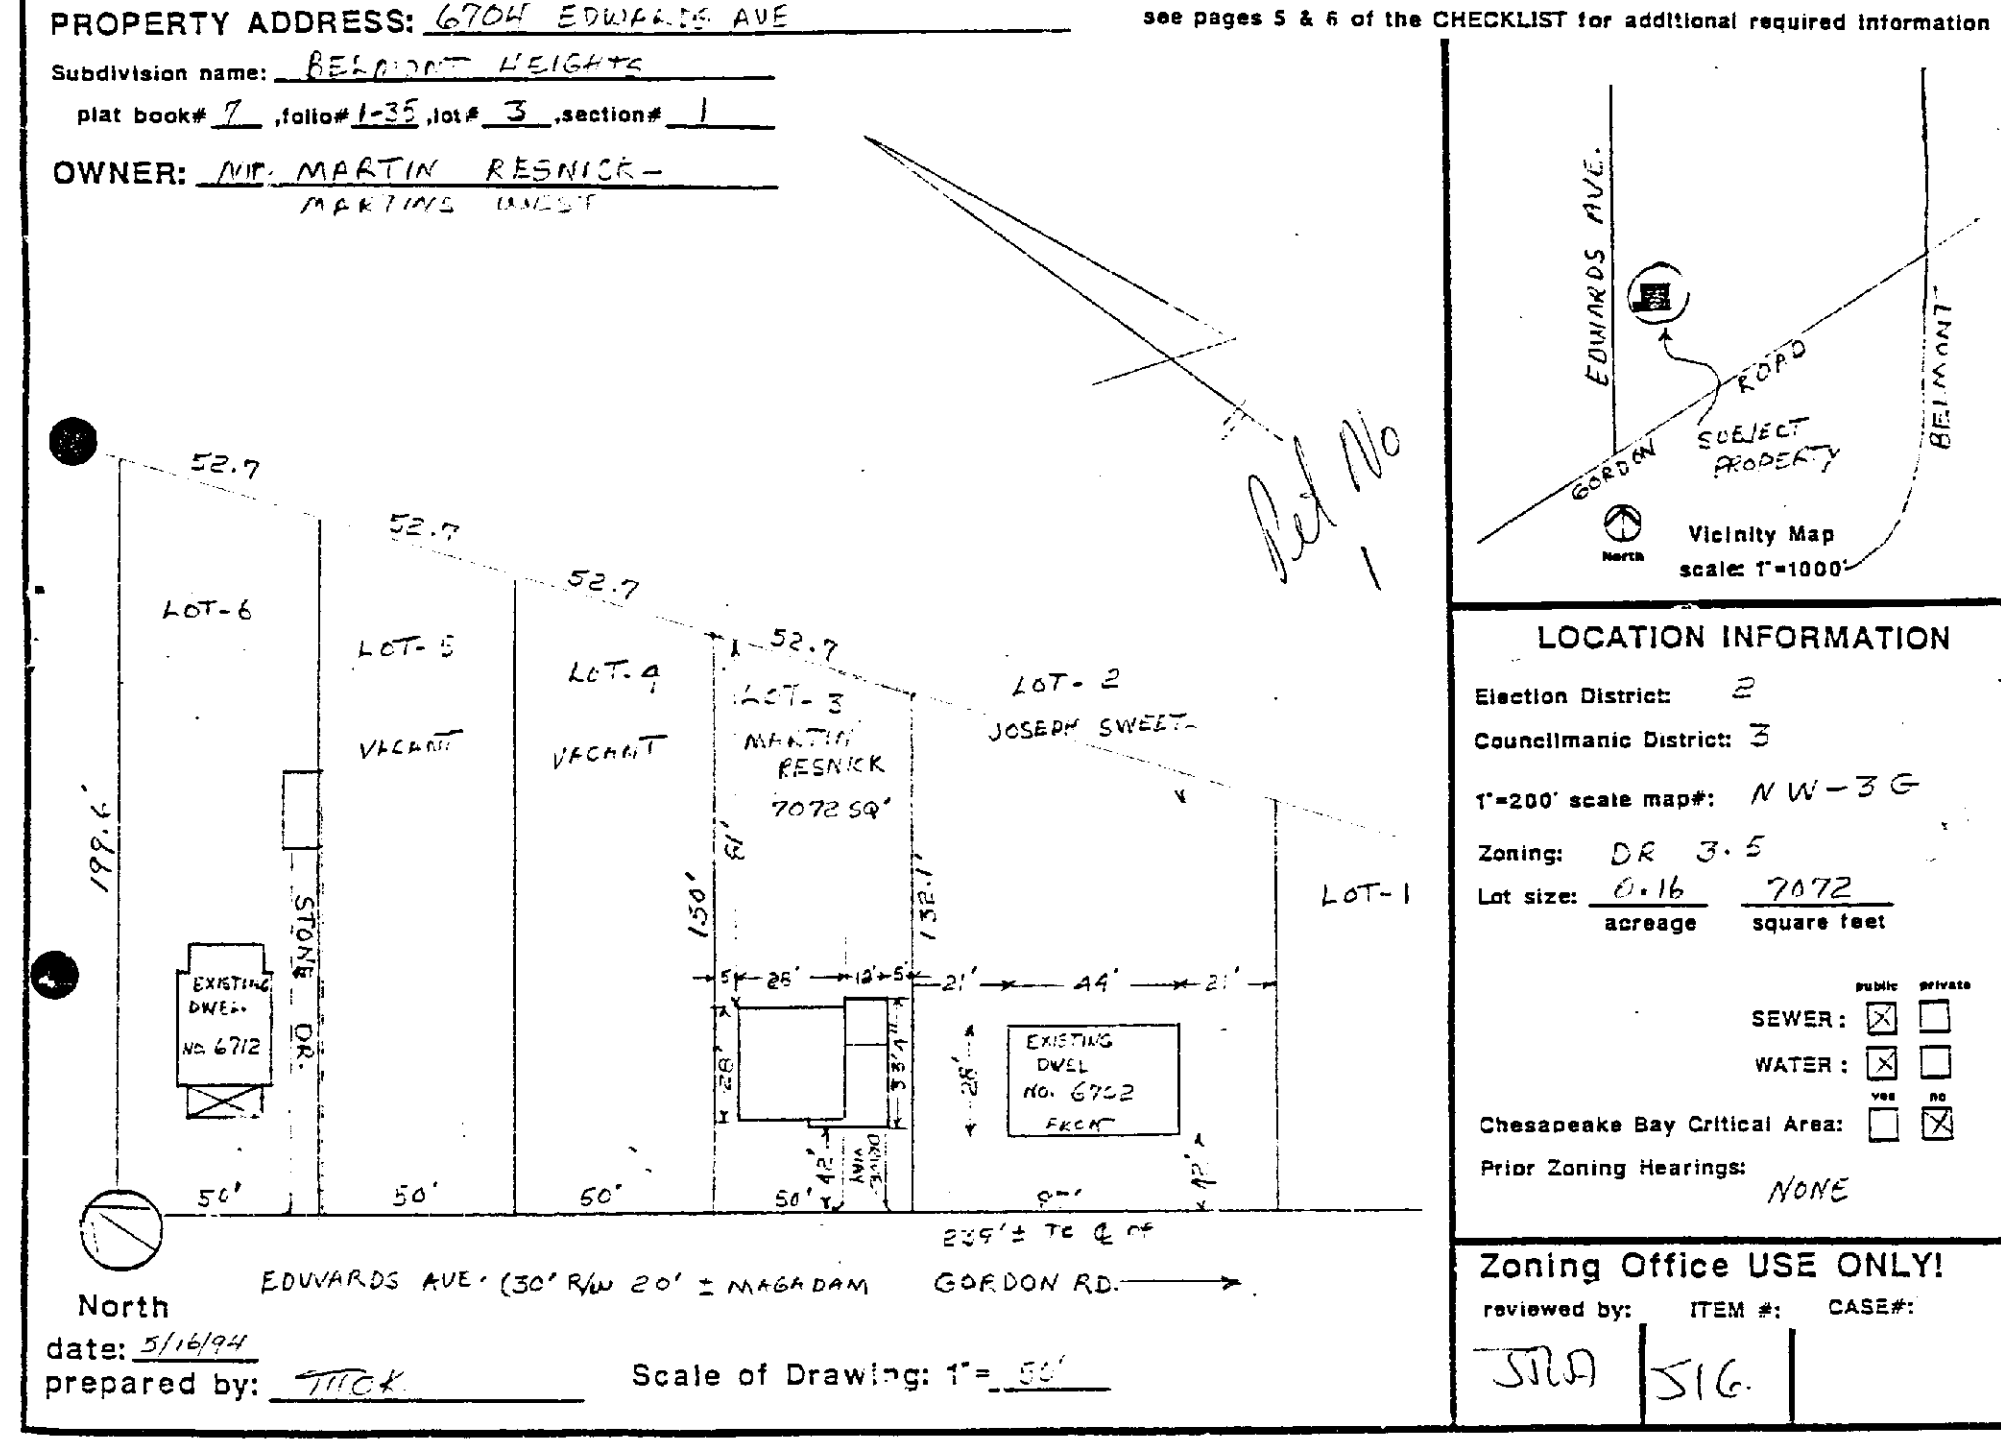 PROPERTY ADDRESS: 6704 EDWARDS AVE
see pages 5 & 6 of the CHECKLIST for additional required information
Subdivision name: BELMONT HEIGHTS
plat book# 7 ,folio# 1-35 ,lot# 3 ,section# 1
OWNER: Mr. MARTIN RESNICK -
MARTINS WEST
Pet No
1
52.7
52.7
52.7
52.7
LOT-6
LOT-5
VACANT
LOT-4
VACANT
LOT-3
MARTIN
RESNICK
7072 SQ'
LOT-2
JOSEPH SWEET
LOT-1
199.6'
150'
81'
132.1'
STONE DR.
EXISTING
DWEL.
NO. 6712
5' 28' 12' 5' 21' 44' 21'
28'
33'4"
28'
EXISTING
DWEL
NO. 6702
FRONT
42'
DRIVE-
WAY
42'
50' 50' 50' 50'
239'± TO ℄ OF
EDWARDS AVE. (30' R/W 20' ± MACADAM GORDON RD.
North
date: 5/16/94
prepared by:
Scale of Drawing: 1"= 50'
EDWARDS AVE.
GORDON ROAD
BELMONT
SUBJECT
PROPERTY
North
Vicinity Map
scale: 1"=1000'
LOCATION INFORMATION
Election District: 2
Councilmanic District: 3
1"=200' scale map#: NW-3G
Zoning: DR 3.5
Lot size: 0.16 7072
acreage square feet
public private
SEWER:
WATER:
yes no
Chesapeake Bay Critical Area:
Prior Zoning Hearings:
NONE
Zoning Office USE ONLY!
reviewed by: ITEM #: CASE#:
516.